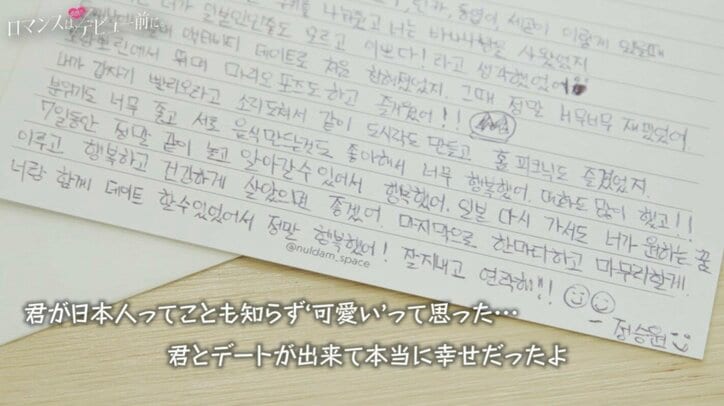 ロマンスは、デビュー前に。
너가 일본인인줄도 모르고 이쁘다! 라고 생각했었어
뛰며 마리오 포즈도 하고 즐거웠어!! 그때 정말 너무너무 재밌었어.
내가 갑자기 빨리오라고 소리도쳐서 같이 도시락도 만들고 홈 피크닉도 즐겼었지.
분위기도 너무 좋고 서로 음식만드는것도 좋아해서 너무 행복했어. 대화도 많이 했고!!
7일동안 정말 같이 놀고 알아갈수 있어서 행복했어. 일본 다시 가서도 너가 원하는 꿈
이루고 행복하고 건강하게 살았으면 좋겠어. 마지막으로 한마디하고 마무리할게.
너랑 함께 데이트 할수있었어서 정말 행복했어! 잘지내고 연락해!!
- 정승원
@nuldam_space
君が日本人ってことも知らず‘可愛い’って思った…
君とデートが出来て本当に幸せだったよ